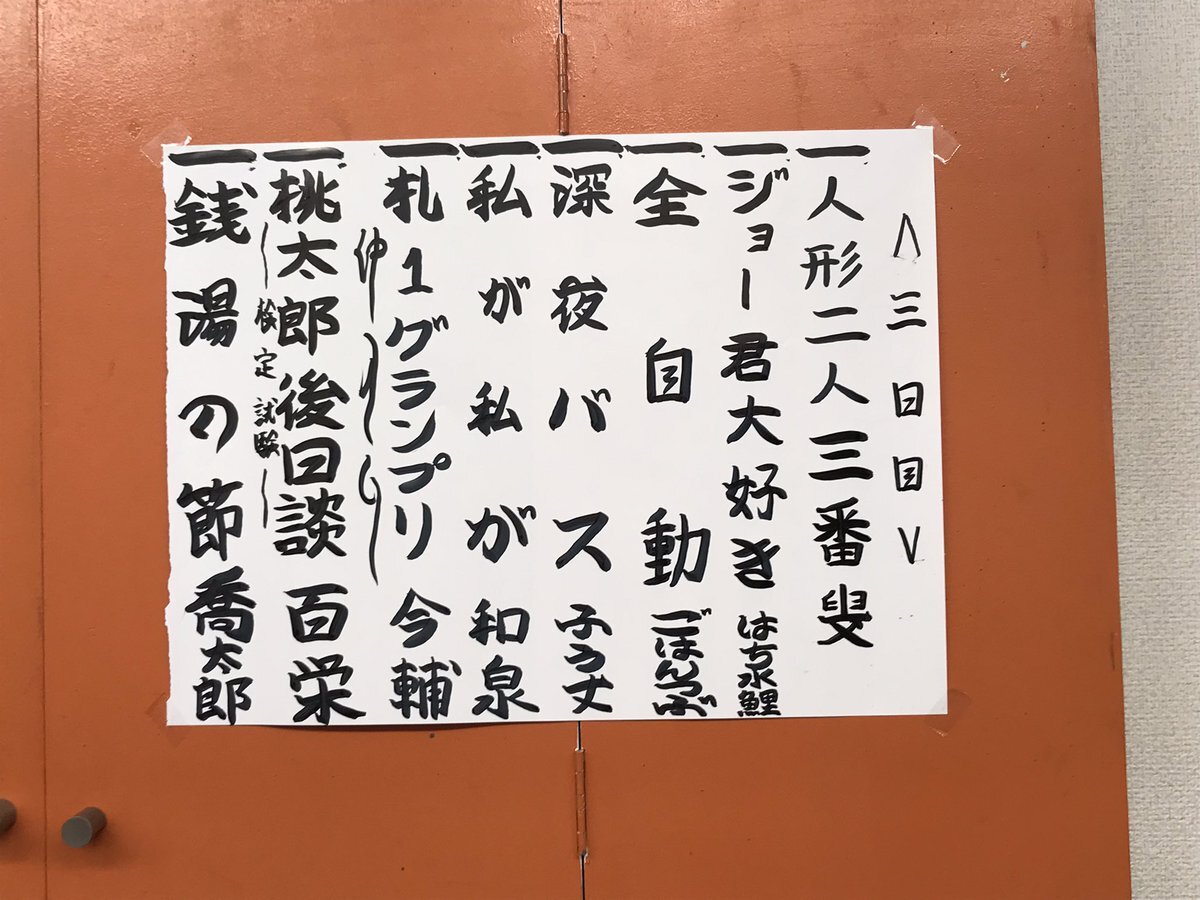 <三日目>
一 人形二人三番叟
一 ジョー君大好き はち水鯉
一 全自動 ごはんつぶ
一 深夜バス ふう丈
一 私が私が 和泉
一 札1グランプリ 今輔
仲入り
一 桃太郎後日談 百栄
～検定試験～
一 銭湯の節 喬太郎